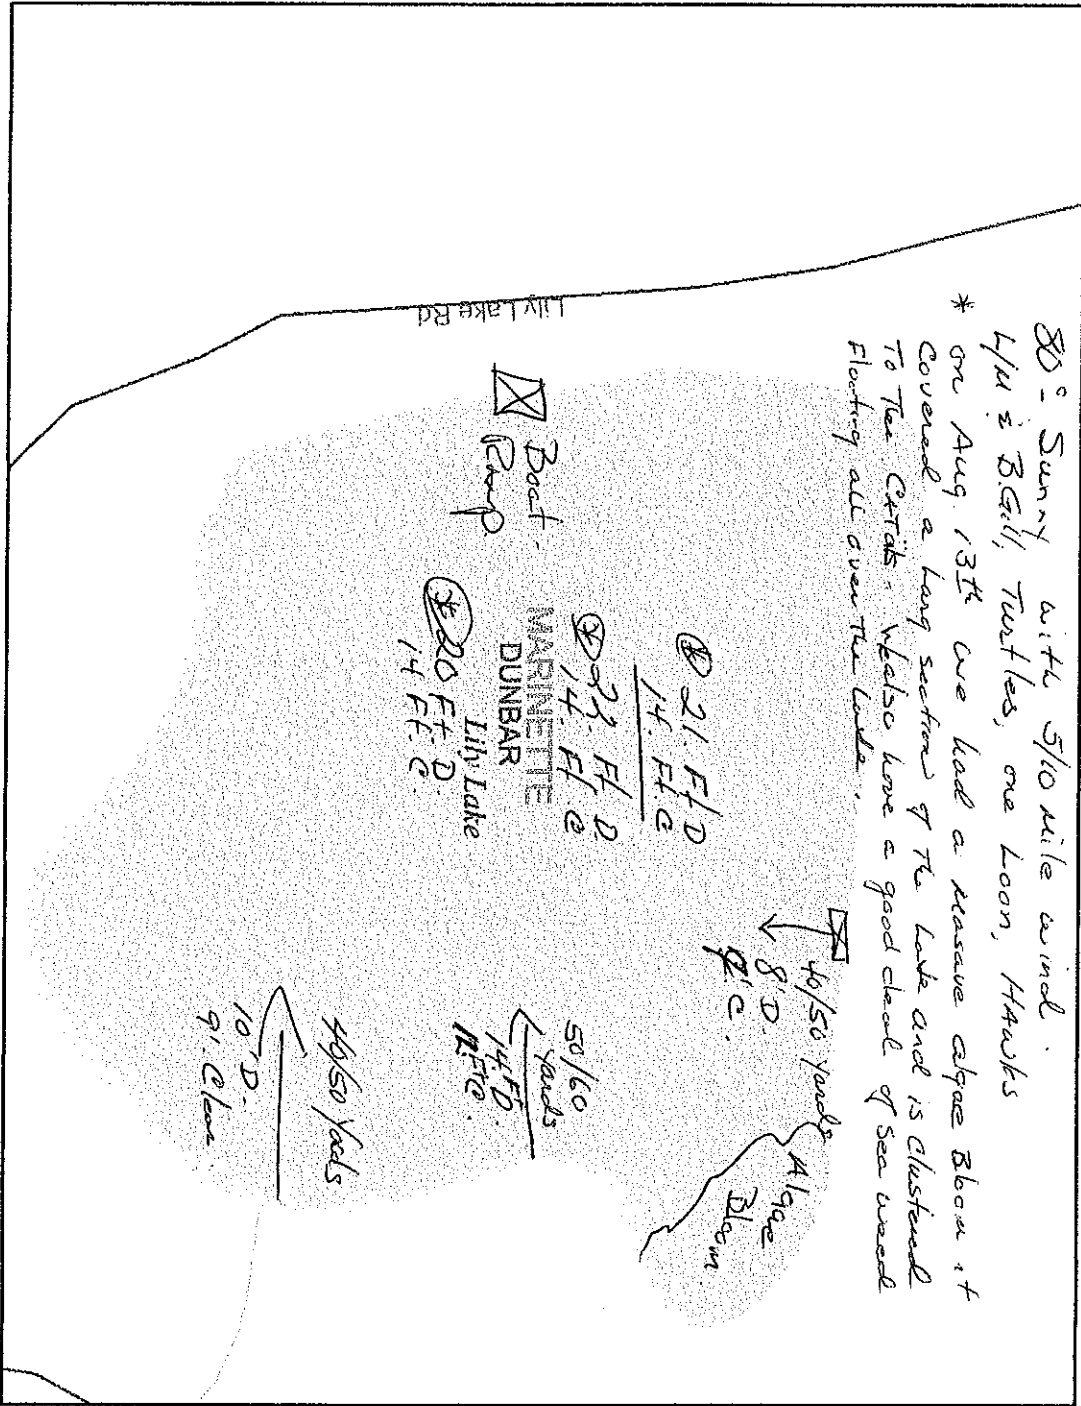 80° Sunny with 5/10 mile wind.
L/M & B.Gill, Turtles, one Loon, HAwks
* on Aug. 13th we had a masave algae Bloom it
Covered a larg section of The Lake and is Clustered
To The CATails. We also have a good deal of sea weed
Floating all over The Lake.
Lily Lake Rd
Boat
Ramp
* 21. Ft D
14. Ft C
* 22. Ft D
14. Ft C
MARINETTE
DUNBAR
Lily Lake
* 20 Ft. D.
14 Ft. C.
40/50 yards
8' D.
C.
Algae
Bloom.
50/60
Yards
14. Ft D.
Ft C.
40/50 Yads
10' D.
9'. Clear.